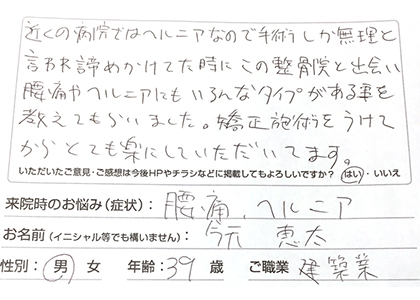 近くの病院ではヘルニアなので手術しか無理と
言われ諦めかけてた時にこの整骨院と出会い
腰痛やヘルニアにもいろんなタイプがある事を
教えてもらいました。矯正施術をうけて
からとても楽にしていただいてます。
いただいたご意見・ご感想は今後HPやチラシなどに掲載してもよろしいですか? はい・いいえ
来院時のお悩み(症状): 腰痛、ヘルニア
お名前(イニシャル等でも構いません): 今元 恵太
性別: 男 女 年齢: 39 歳 ご職業 建築業